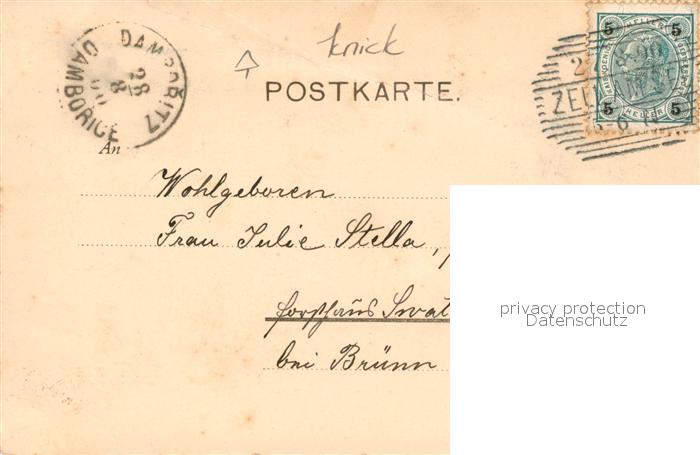 knick
DAMBORITZ
28
8
00
DAMBOŘICE
POSTKARTE.
5 HELLER 5
5 HELLER 5
An
Wohlgeboren
Frau Julie Stella,
Forsthaus Swat
bei Brünn
privacy protection
Datenschutz